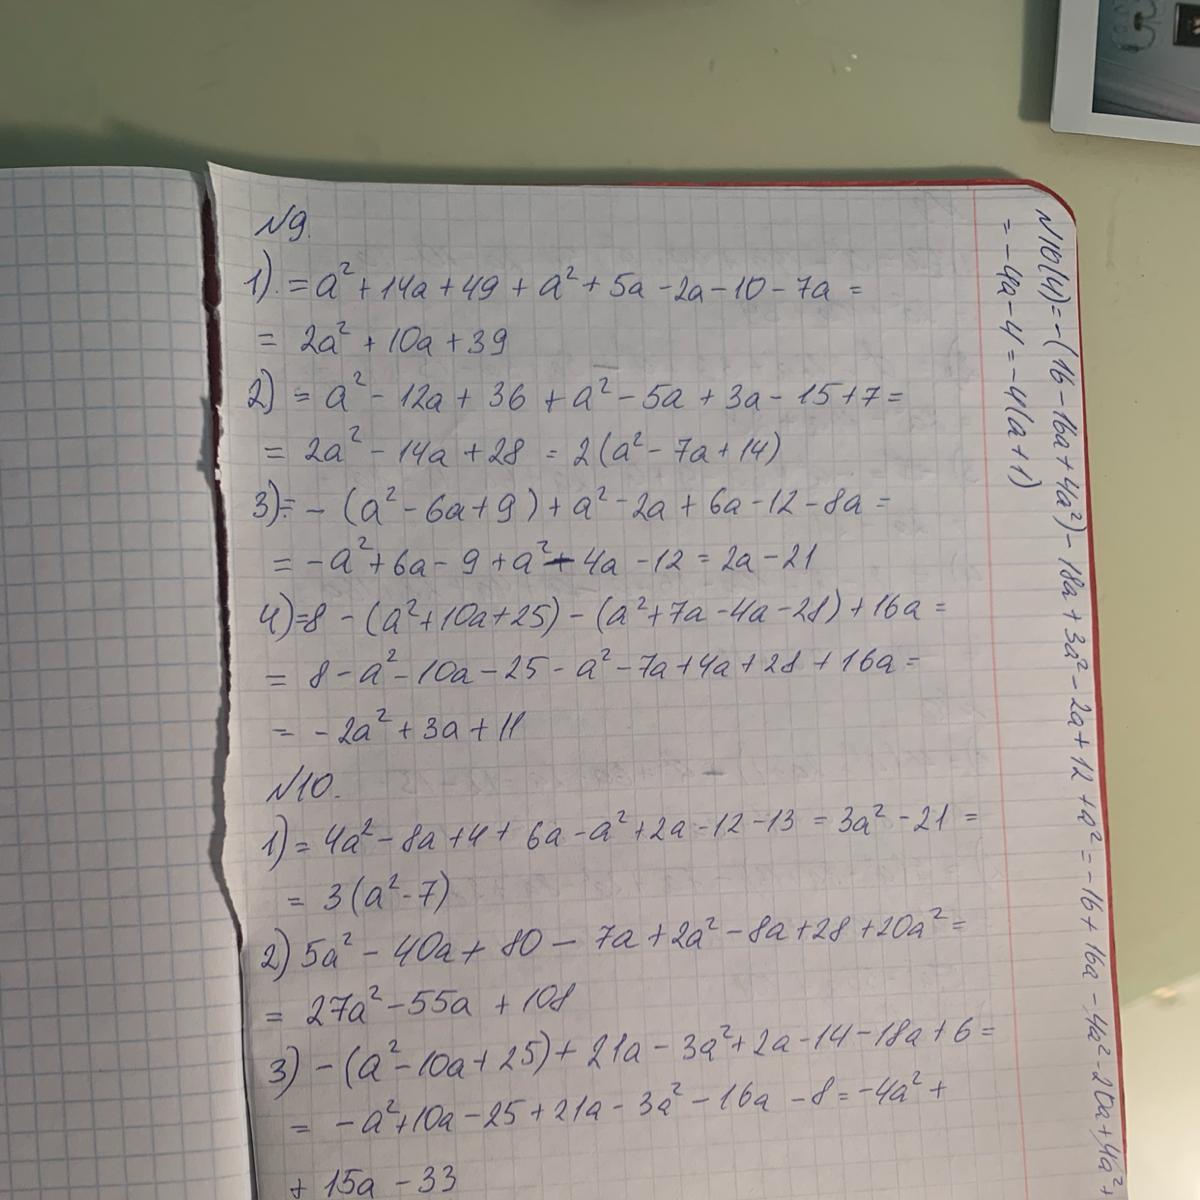 №9.
1) = a² + 14a + 49 + a² + 5a - 2a - 10 - 7a =
= 2a² + 10a + 39
2) = a² - 12a + 36 + a² - 5a + 3a - 15 + 7 =
= 2a² - 14a + 28 = 2(a² - 7a + 14)
3) = - (a² - 6a + 9) + a² - 2a + 6a - 12 - 8a =
= -a² + 6a - 9 + a² - 4a - 12 = 2a - 21
4) = 8 - (a² + 10a + 25) - (a² + 7a - 4a - 28) + 16a =
= 8 - a² - 10a - 25 - a² - 7a + 4a + 28 + 16a =
= - 2a² + 3a + 11
№10.
1) = 4a² - 8a + 4 + 6a - a² + 2a - 12 - 13 = 3a² - 21 =
= 3(a² - 7)
2) 5a² - 40a + 80 - 7a + 2a² - 8a + 28 + 20a² =
= 27a² - 55a + 108
3) - (a² - 10a + 25) + 21a - 3a² + 2a - 14 - 18a + 6 =
= -a² + 10a - 25 + 21a - 3a² - 16a - 8 = -4a² +
+ 15a - 33
№10(4) = -(16 - 16a + 4a²) - 18a + 3a² - 2a + 12 + a² = -16 + 16a - 4a² - 20a + 4a² +
= -4a - 4 = -4(a + 1)